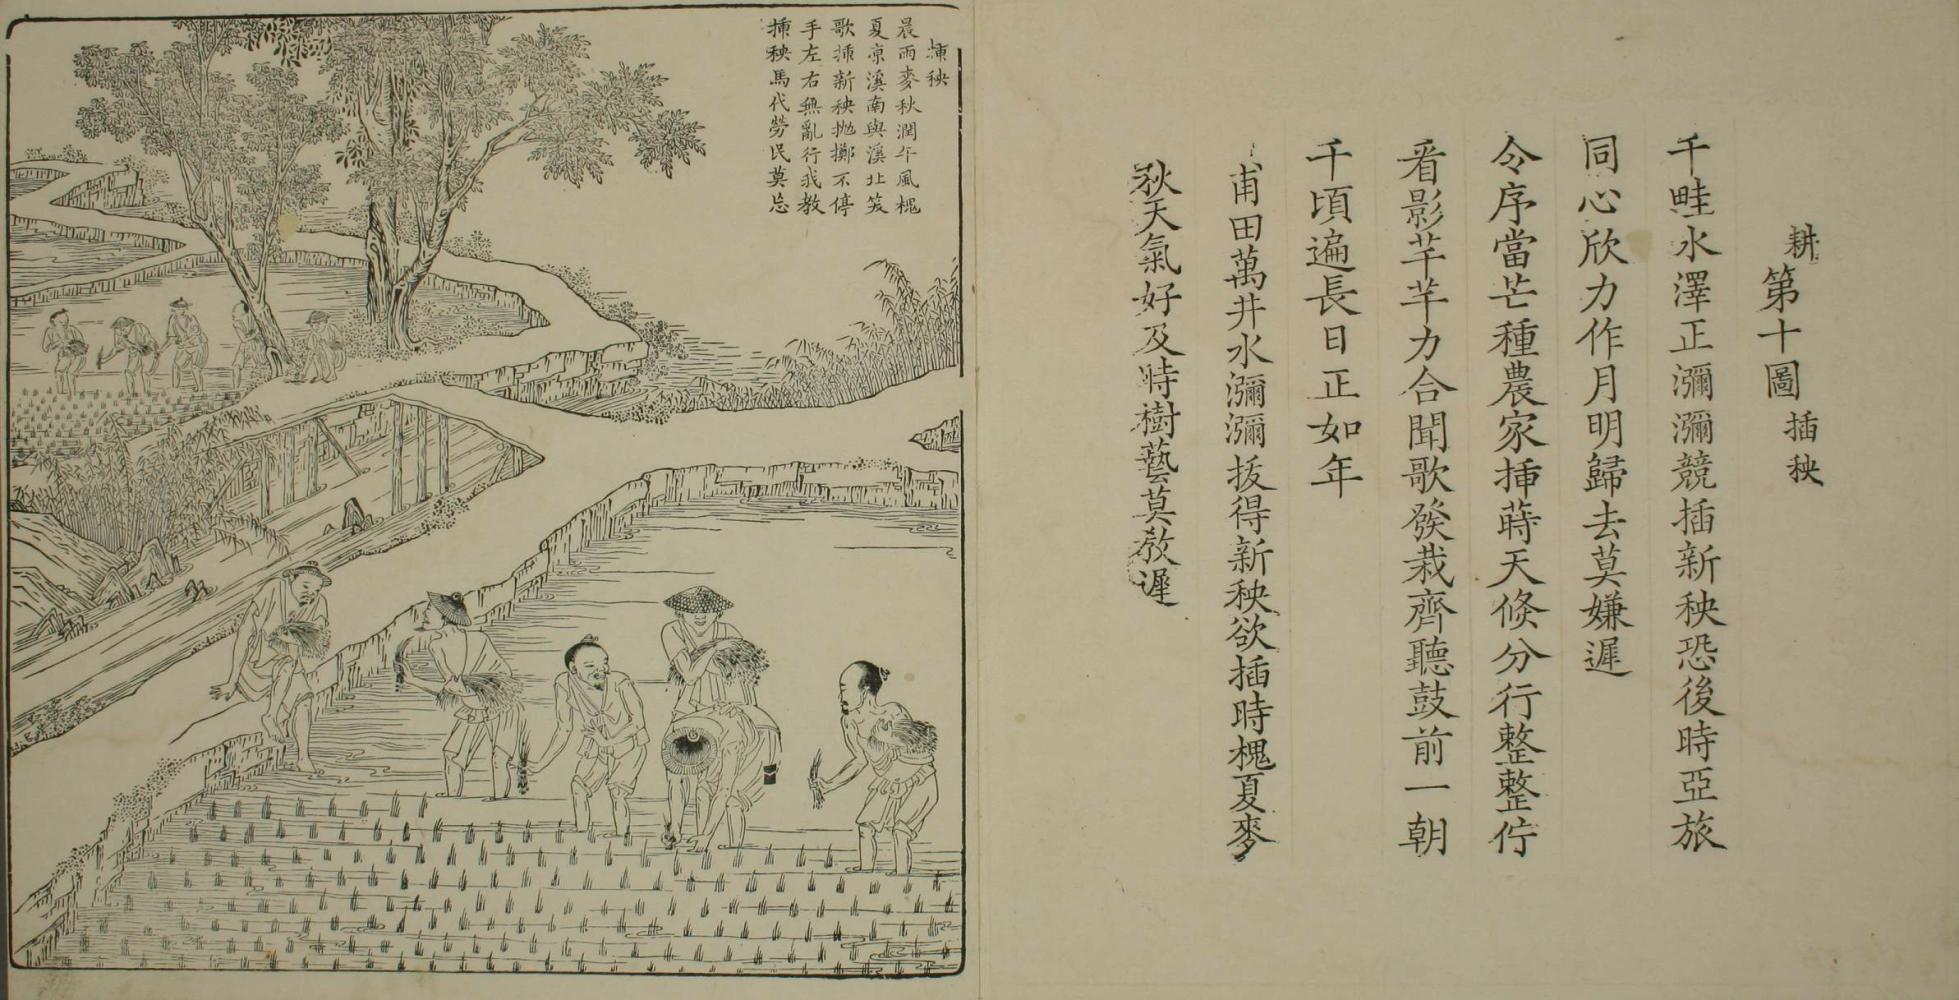 耕第十圖插秧
千畦水澤正瀰瀰競插新秧恐後時亞旅
同心欣力作月明歸去莫嫌遲
令序當芒種農家揷蒔天倐分行整整佇
看影芊芊力合聞歌發栽齊聽鼓前一朝
千頃遍長日正如年
甫田萬井水瀰瀰拔得新秧欲插時槐夏麥
秋天氣好及時樹藝莫教遲
揷秧
晨雨麥秋潤午風槐
夏凉溪南與溪北笑
歌揷新秧抛擲不停
手左右無亂行我教
揷秧馬代勞民莫忘